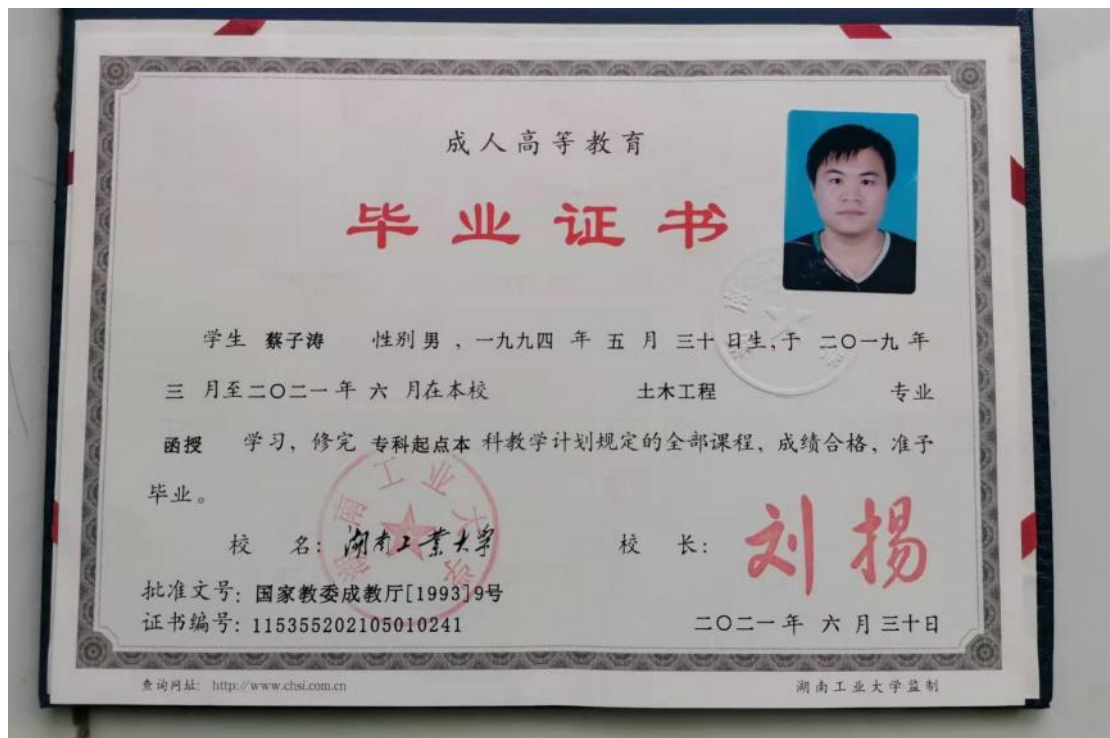 成人高等教育
毕业证书
学生 蔡子涛 性别 男 ，一九九四 年 五 月 三十 日生,于 二〇一九 年
三 月至二〇二一 年 六 月在本校 土木工程 专业
函授 学习，修完 专科起点本 科教学计划规定的全部课程，成绩合格，准予
毕业。
湖南工业大学
校 名：湖南工业大学 校 长：刘扬
批准文号：国家教委成教厅[1993]9号
证书编号：115355202105010241 二〇二一 年 六 月 三十日
查询网址：http://www.chsi.com.cn 湖南工业大学监制